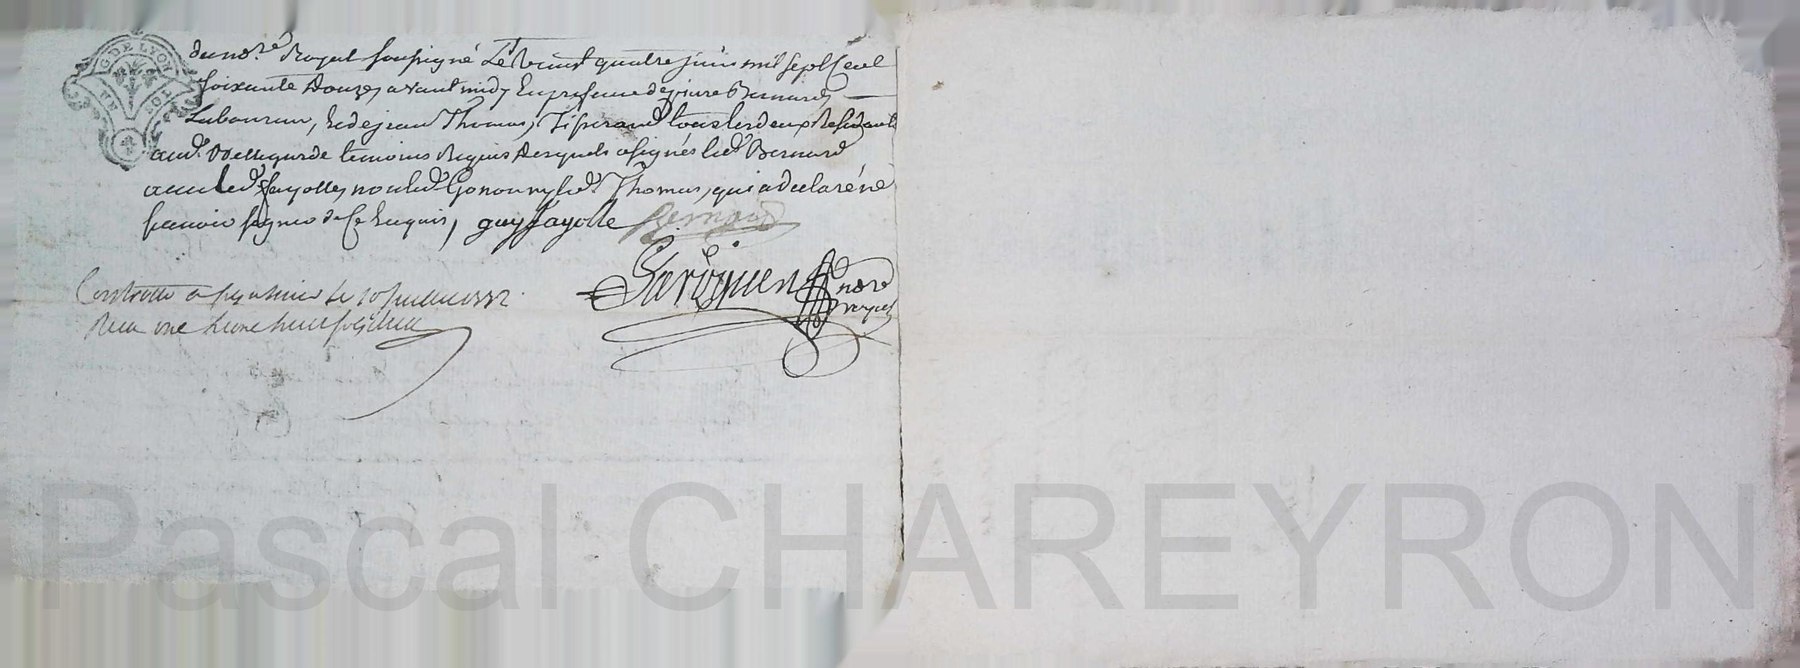 G. DE LYON
UN SOL
du no.re Royal soussigné Le vint quatre juin mil sept Cent
soixante douze, avant midy En presence de pierre Bernard,
Laboureur, Et de jean Thomas, Tisserand tous les deux Residants
aud. Bellegarde temoins Requis desquels a signés led. Bernard
avec led. fayolle, non led. Gonon ny led. Thomas, qui a declaré ne
scavoir signer de Ce Enquis, guy fayolle Bernard
no.re
royal
Controllé a le 10 juillet 1772
Recu une Livre
Pascal CHAREYRON